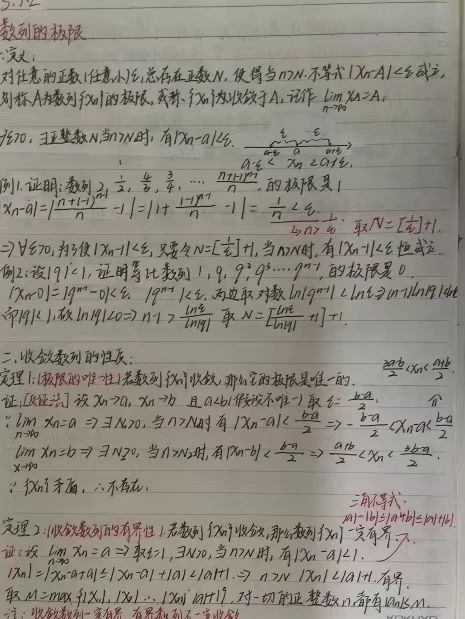 5.12
数列的极限
一.定义:
对任意的正数(任意小)ε,总存在正数N,使得当n>N.不等式|Xn-A|<ε成立,
则称A为数列{Xn}的极限,或称{Xn}为收敛于A,记作 lim n→∞ Xn=A.
∀ε>0, ∃正整数N,当n>N时,有|Xn-a|<ε.
ε ε
a-ε a a+ε
a-ε < Xn < a+ε.
例1.证明:数列 2, 1/2, 4/3, 3/4, … (n+(-1)^(n-1))/n, 的极限是1
|Xn-a|=|(n+(-1)^(n-1))/n -1|=|1+(-1)^(n-1)/n -1|=1/n<ε.
⇒n>1/ε 取N=[1/ε]+1.
⇒∀ε>0,为了使|Xn-1|<ε,只要令N=[1/ε]+1,当n>N时,有|Xn-1|<ε恒成立.
例2:设|q|<1,证明等比数列 1, q, q² q³ … q^(n-1), 的极限是0.
|Xn-0|=|q^(n-1)-0|<ε. |q^(n-1)|<ε. 两边取对数 ln|q^(n-1)|<lnε⇒(n-1)ln|q|<lnε
而|q|<1,故ln|q|<0⇒n-1>lnε/ln|q| 取N=[lnε/ln|q| +1]+1.
二.收敛数列的性质:
定理1:[极限的唯一性]若数列{Xn}收敛,那么它的极限是唯一的.
证:[反证法]设Xn→a, Xn→b 且a<b(假设不唯一)取ε=(b-a)/2.
∵lim Xn=a⇒∃N₁>0,当n>N₁时有|Xn-a|<(b-a)/2⇒-(b-a)/2<Xn-a<(b-a)/2
(3a-b)/2<Xn<(a+b)/2
lim x→∞ Xn=b⇒∃N₂>0,当n>N₂时,有|Xn-b|<(b-a)/2⇒(a+b)/2<Xn<(3b-a)/2.
∵{Xn}矛盾,∴不存在.
三角不等式:
|a|-|b|≤|a+b|≤|a|+|b|.
定理2:(收敛数列的有界性).若数列{Xn}收敛,那么数列{Xn}一定有界
证:设lim n→∞ Xn=a⇒取ε=1,∃N>0,当n>N时,有|Xn-a|<1.
|Xn|=|Xn-a+a|≤|Xn-a|+|a|<|a|+1.⇒n>N |Xn|<|a|+1.有界.
取M=max{|X₁|,|X₂|…|Xn|,|a|+1},对一切的正整数n,都有|Xn|≤M.
注:收敛数列一定有界,有界数列不一定收敛
KOKUYO